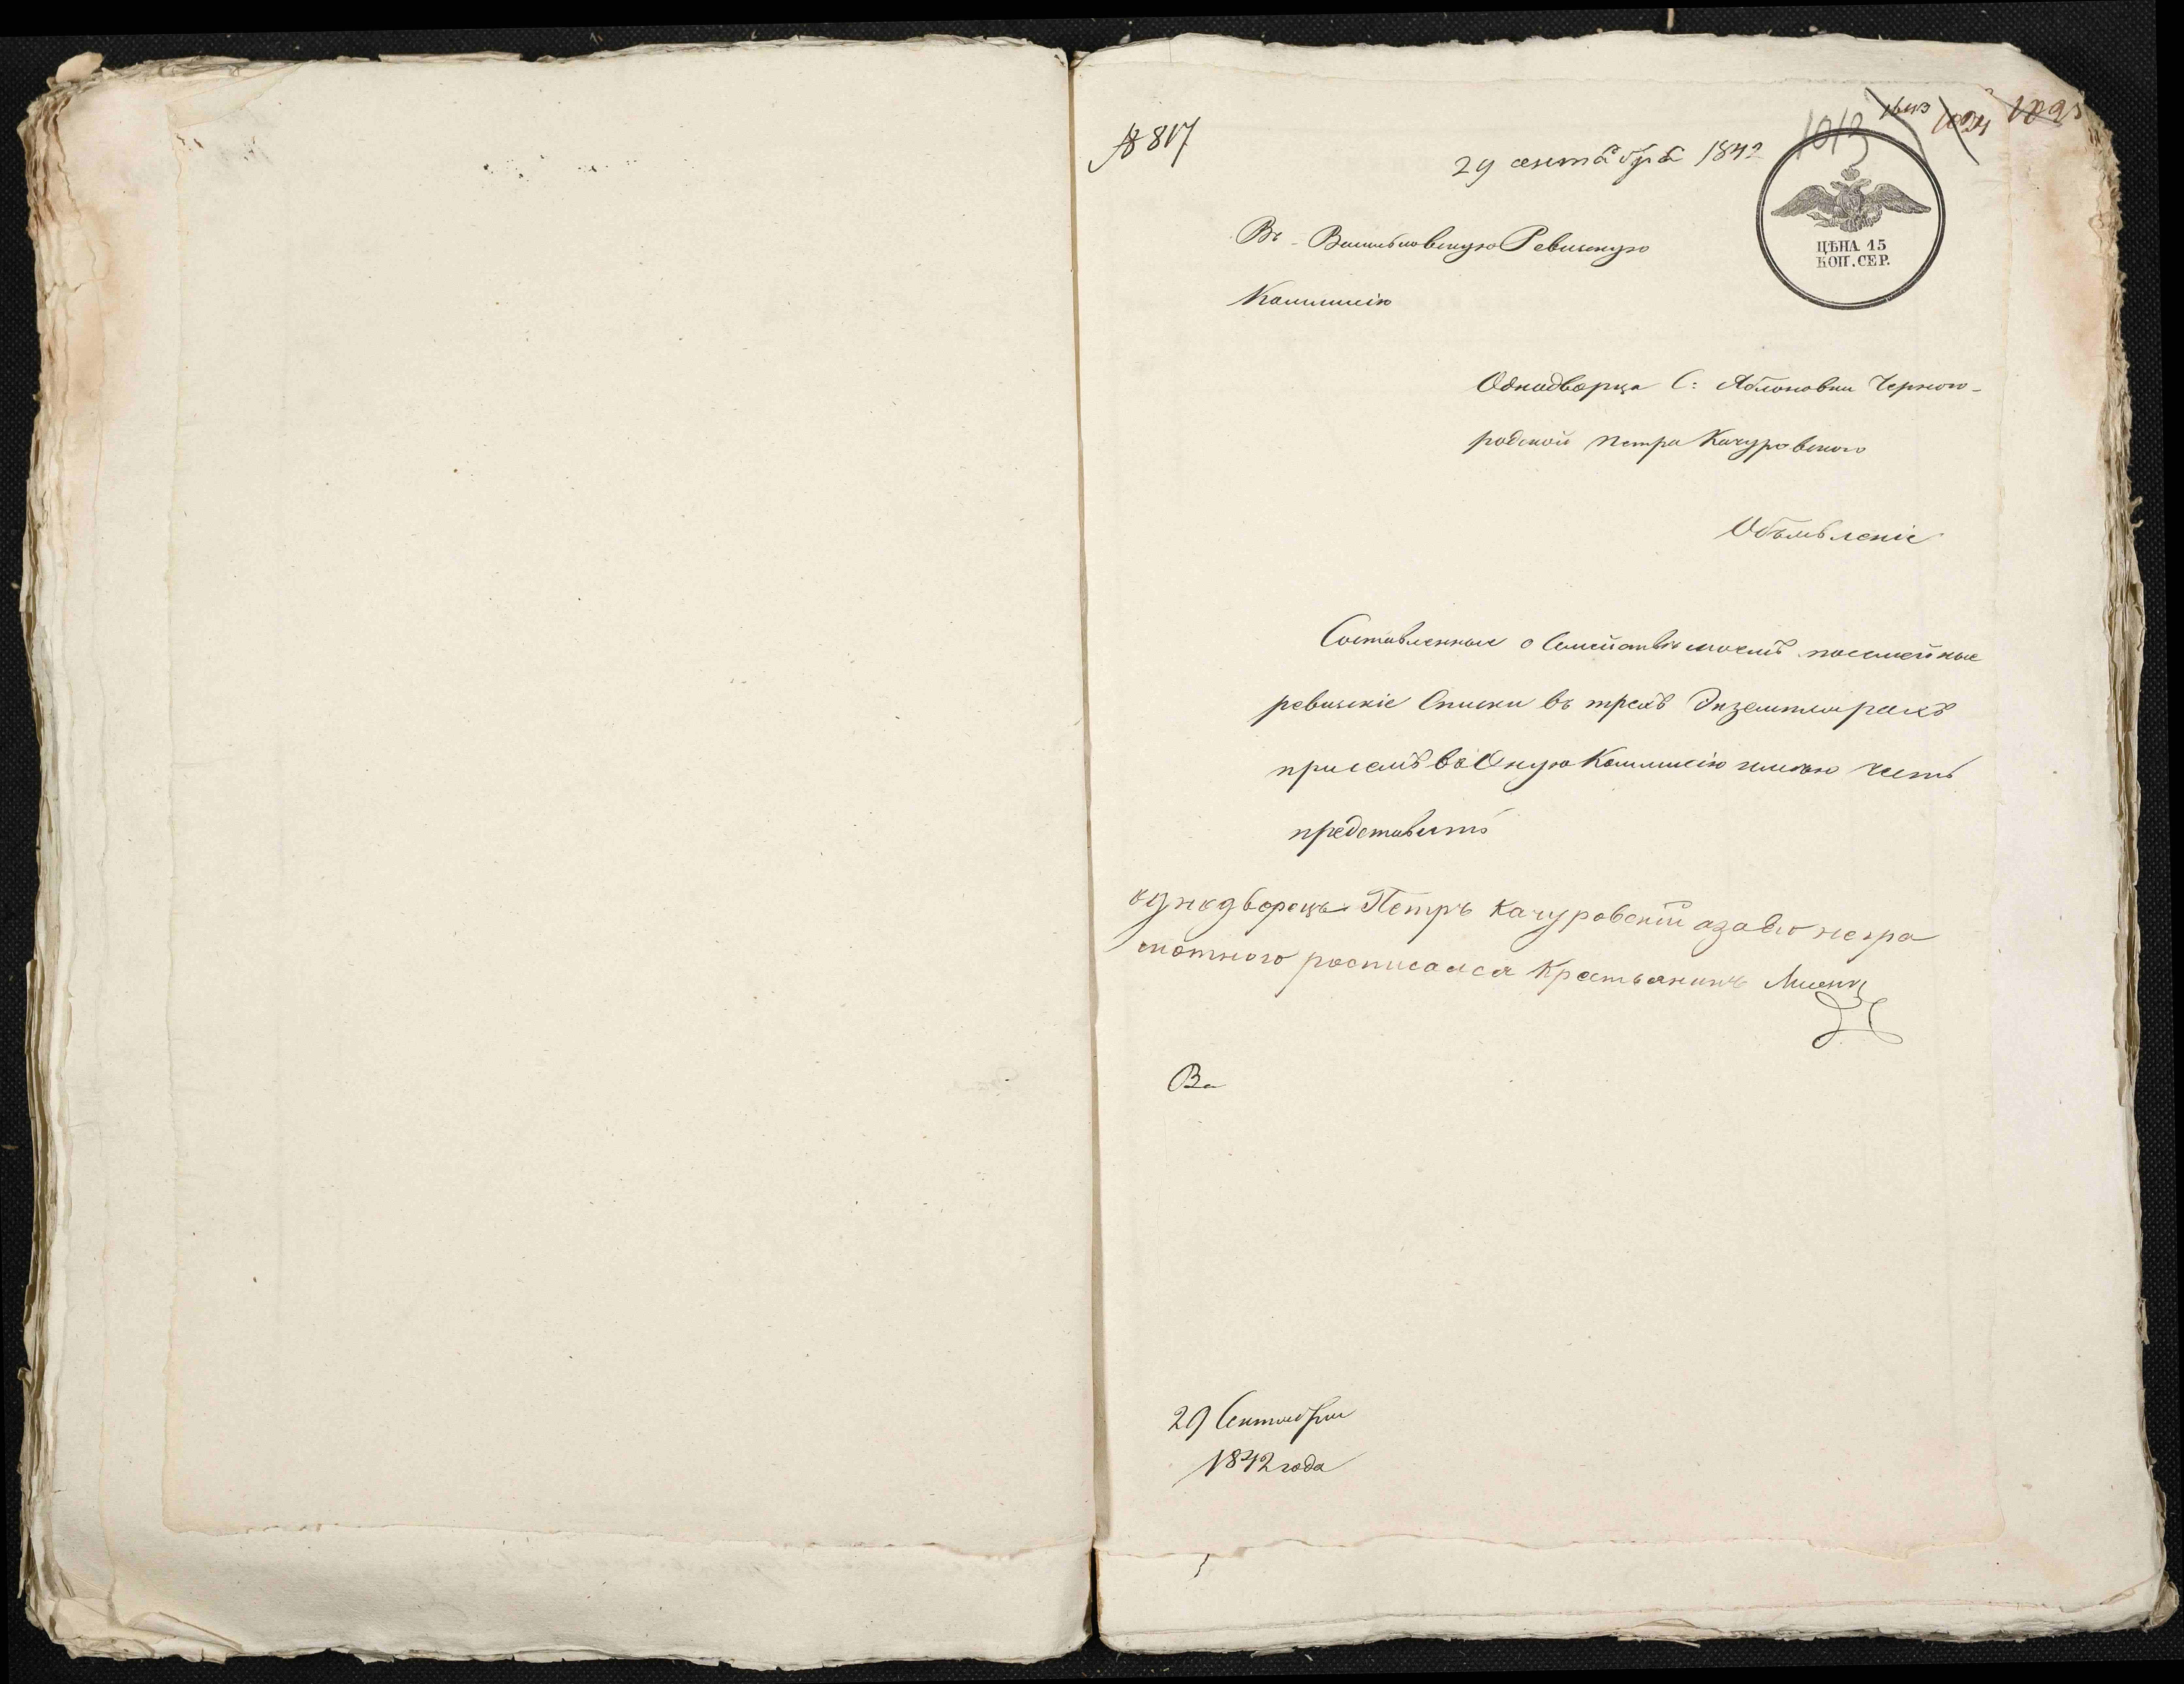 № 817
1013 1643 1024 1025
29 сентября 1842
ЦѢНА 15
КОП. СЕР.
Въ Васильковскую Ревизскую
Коммисію
Однодворца С: Яблоновки Черного-
родской Петра Качуровского
Объявленіе
Составленные о Семействѣ моемъ посемейные
ревизскіе Списки въ трехъ Экземплярахъ
присемъ во Оную Коммисію имѣю честь
представить
однодворецъ Петръ Качуровскій азаего негра
мотного росписался Крестьянинъ
29 Сентября
1842 года